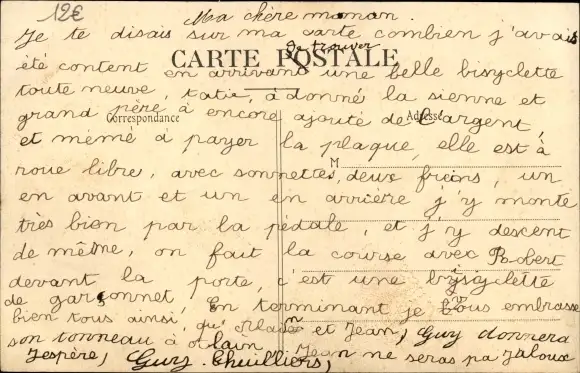 12€
Ma chère maman.
Je te disais sur ma carte combien j'avais
CARTE POSTALE
été content en arrivant de trouver une belle bisyclette
toute neuve, tatie, à donné la sienne et
grand père à encore ajouté de l'argent,
Correspondance
Adresse
et mémé à payer la plaque, elle est à
roue libre, avec sonnettes, deux freins, un
M
en avant et un en arrière j'y monte
très bien par la pédale, et j'y descent
de même, on fait la course avec Robert
devant la porte, c'est une bysiclette
de garçonnet, En terminant je vous embrasse
bien tous ainsi, que Alain et Jean, Guy donnera
son tonneau à Alain Jean ne seras pa jaloux
J'espère, Guy. Cheuilliers,